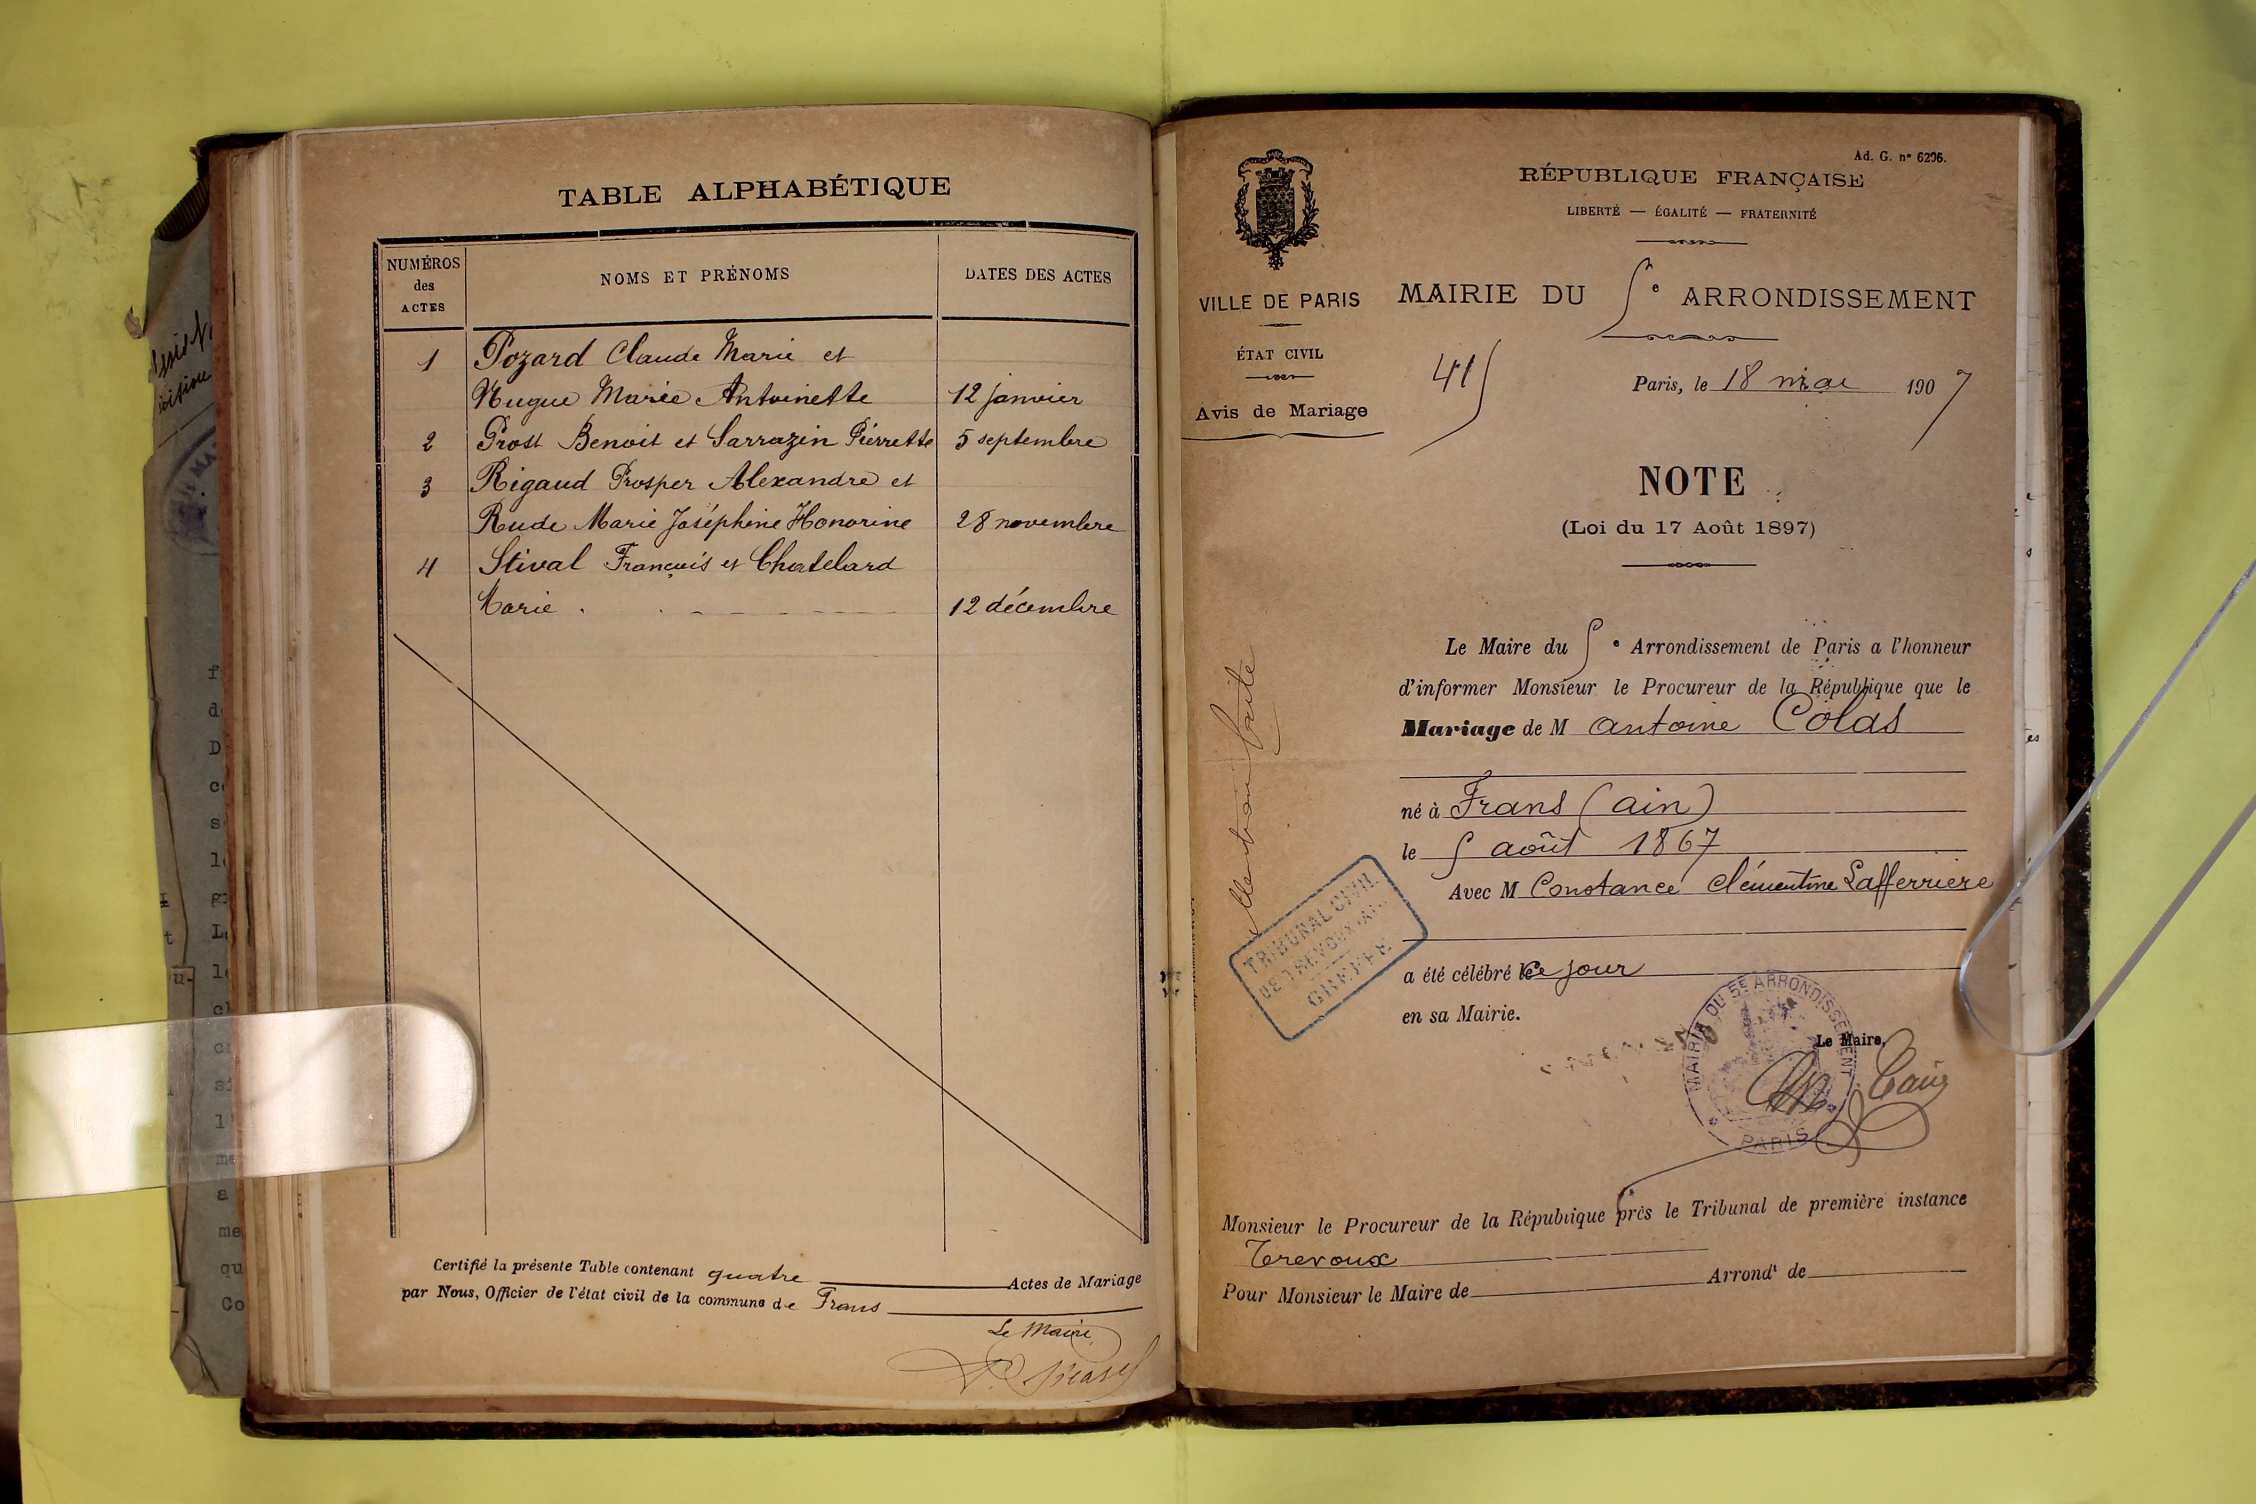 TABLE ALPHABÉTIQUE
NUMÉROS
des
ACTES
NOMS ET PRÉNOMS
DATES DES ACTES
1 Pozard Claude Marie et
Nugue Marie Antoinette 12 janvier
2 Prost Benoit et Sarrazin Pierrette 5 septembre
3 Rigaud Prosper Alexandre et
Rude Marie Joséphine Honorine 28 novembre
4 Stival François et Chatelard
Marie 12 décembre
Certifié la présente Table contenant quatre Actes de Mariage
par Nous, Officier de l'état civil de la commune de Frans
Le Maire
Ad. G. nº 6206.
RÉPUBLIQUE FRANÇAISE
LIBERTÉ — ÉGALITÉ — FRATERNITÉ
VILLE DE PARIS
MAIRIE DU 5e ARRONDISSEMENT
ÉTAT CIVIL
Avis de Mariage
415
Paris, le 18 mai 1907
NOTE
(Loi du 17 Août 1897)
Le Maire du 5e Arrondissement de Paris a l'honneur
d'informer Monsieur le Procureur de la République que le
Mariage de M antoine Colas
né à Frans (ain)
le 5 août 1867
Avec M Constance Clémentine Lafferriere
a été célébré le ce jour
en sa Mairie.
Mention faite
TRIBUNAL CIVIL
DE TREVOUX (AIN)
GREFFE
MAIRIE DU 5E ARRONDISSEMENT
PARIS
Le Maire,
Monsieur le Procureur de la République près le Tribunal de première instance
Trevoux
Pour Monsieur le Maire de Arrondt de